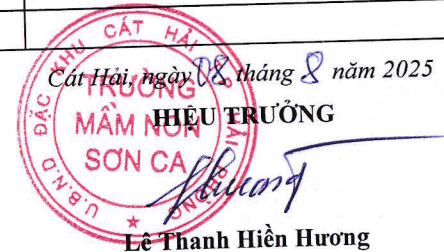 Cát Hải, ngày 08 tháng 8 năm 2025
HIỆU TRƯỞNG
U.B.N.D ĐẶC KHU CÁT HẢI
TRƯỜNG
MẦM NON
SƠN CA
Lê Thanh Hiền Hương